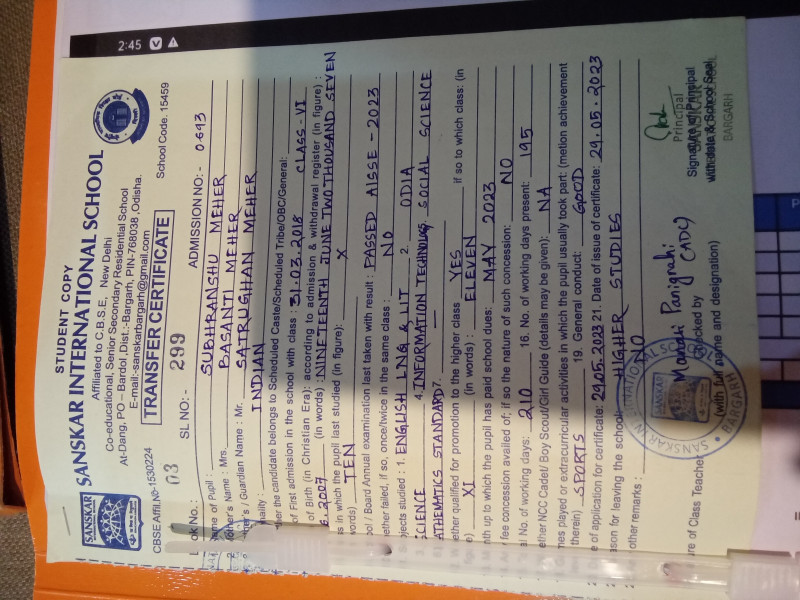 2:45
STUDENT COPY
SANSKAR INTERNATIONAL SCHOOL
SANSKAR
Affiliated to C.B.S.E., New Delhi
Co-educational, Senior Secondary Residential School
At-Dang, PO – Bardol, Dist.:-Bargarh, PIN-768038, Odisha.
E-mail:-sanskarbargarh@gmail.com
CBSE Affil. Nº-1530224
TRANSFER CERTIFICATE
School Code. 15459
03 SL NO:- 299 ADMISSION NO:- 0643
ame of Pupil : SUBHRANSHU MEHER
other's Name : Mrs. BASANTI MEHER
er's / Guardian Name : Mr. SATRUGHAN MEHER
nality : INDIAN
her the candidate belongs to Scheduled Caste/Scheduled Tribe/OBC/General:
of First admission in the school with class : 31.03.2018 CLASS-VI
of Birth (in Christian Era); according to admission & withdrawal register (in figure) :
6.2007 (in words) : NINETEENTH JUNE TWO THOUSAND SEVEN
s in which the pupil last studied (in figure): X
words) TEN
ool / Board Annual examination last taken with result : PASSED AISSE - 2023
ether failed, if so, once/twice in the same class : NO
bjects studied : 1. ENGLISH LNG & LIT 2. ODIA
SCIENCE 4. INFORMATION TECHNOLOGY SOCIAL SCIENCE
ATHEMATICS STANDARD 7.
ether qualified for promotion to the higher class YES if so to which class: (in
e) XI (in words) : ELEVEN
nth up to which the pupil has paid school dues: MAY 2023
fee concession availed of; if so the nature of such concession: NO
al No. of working days: 210 16. No. of working days present: 195
ether NCC Cadet/ Boy Scout/Girl Guide (details may be given): NA
mes played or extracurricular activities in which the pupil usually took part: (metion achievement
therein) SPORTS 19. General conduct: GOOD
e of application for certificate: 29.05.2023 21. Date of issue of certificate: 29.05.2023
ason for leaving the school: HIGHER STUDIES
other remarks : NO
SANSKAR INTERNATIONAL SCHOOL BARGARH
Manasi Panigrahi (ADC)
ure of Class Teacher
Checked by
(with full name and designation)
Principal
Signature of Principal
with date & School Seal
BARGARH